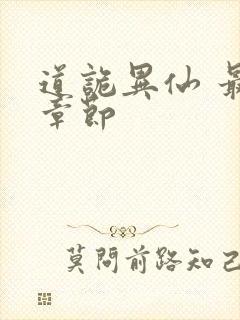 道詭異仙 最
章節
莫問前路知己